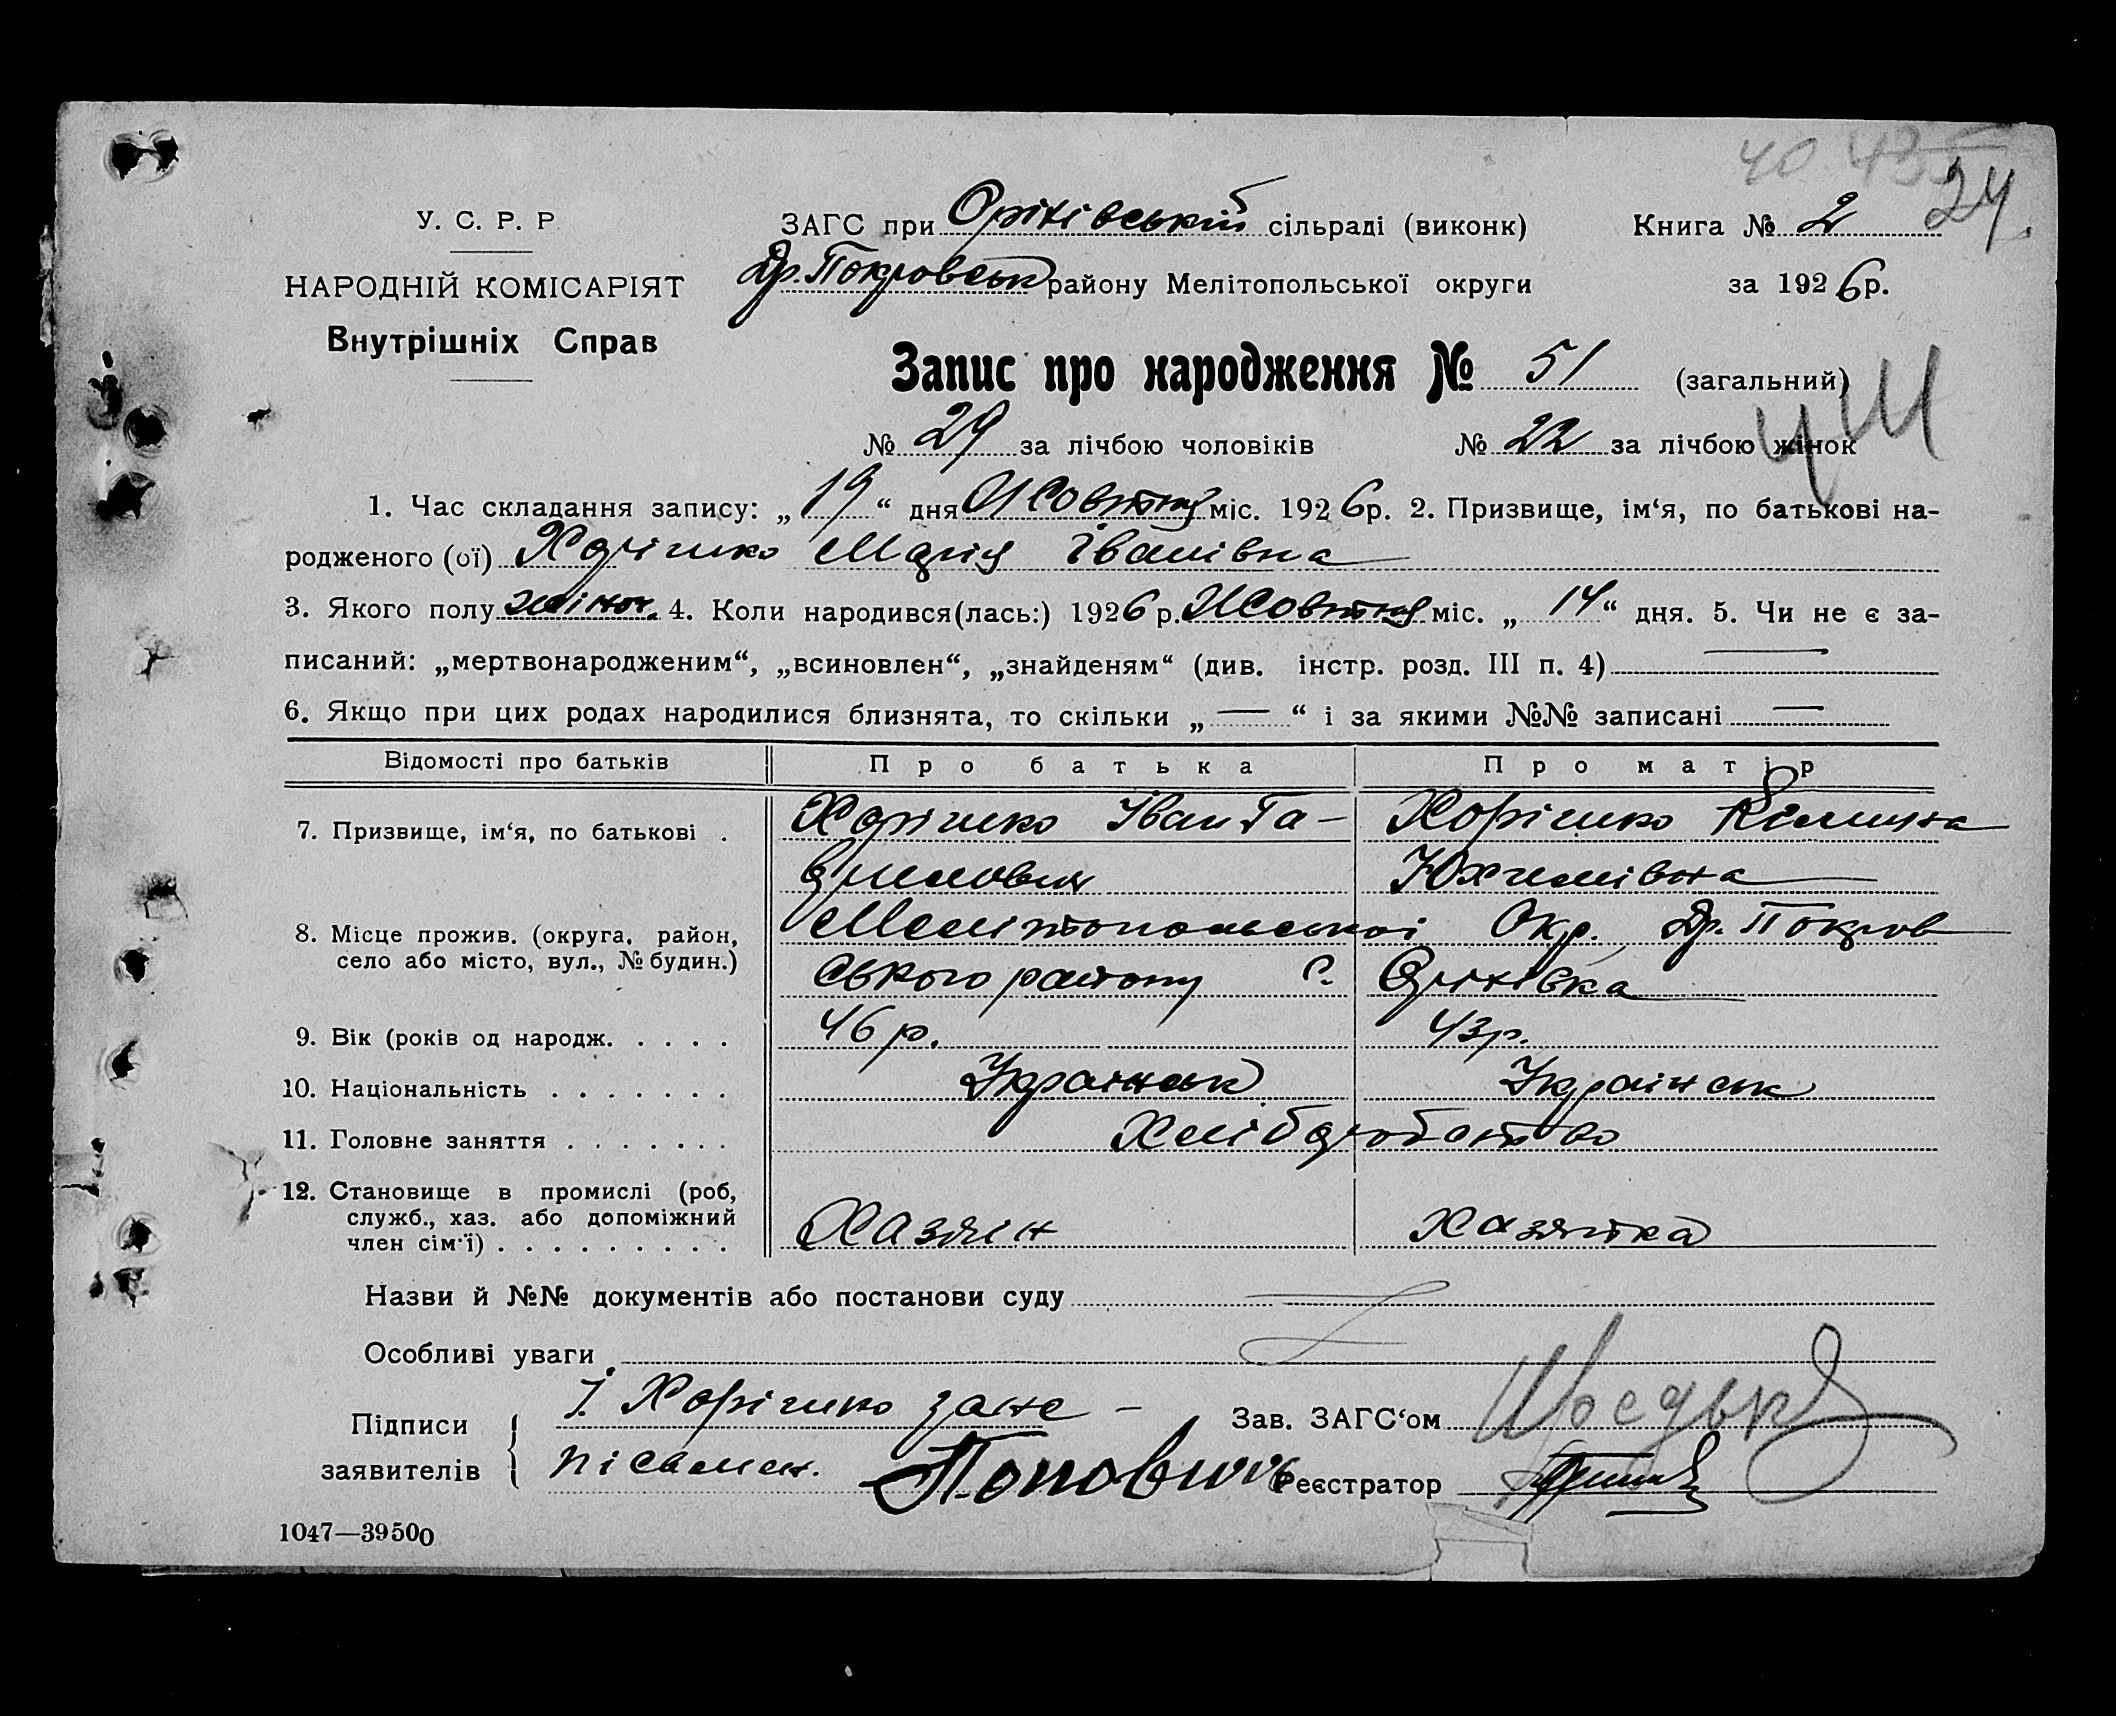 40 43
24
У. С. Р. Р.
НАРОДНІЙ КОМІСАРІЯТ
Внутрішніх Справ
ЗАГС при Орінівській сільраді (виконк)
Др. Покровськ району Мелітопольської округи
Книга № 2
за 1926 р.
Запис про народження № 51 (загальний)
№ 29 за лічбою чоловіків № 22 за лічбою жінок
1. Час складання запису: „19“ дня Жовтня міс. 1926 р. 2. Призвище, ім‘я, по батькові на-
родженого (ої) Хорішко Марія Іванівна
3. Якого полу жіноч. 4. Коли народився(лась:) 1926 р. Жовтня міс. „14“ дня. 5. Чи не є за-
писаний: „мертвонародженим“, „всиновлен“, „знайденям“ (див. інстр. розд. III п. 4) —
6. Якщо при цих родах народилися близнята, то скільки „—“ і за якими №№ записані —
Відомості про батьків Про батька Про матір
7. Призвище, ім‘я, по батькові . Хорішко Іван Га- Хорішко
Юхимівна
8. Місце прожив. (округа, район, Мелітопольської Окр. Др. Покров
село або місто, вул., № будин.) ського району С. Орінівка
9. Вік (років од народж. . . . . 46 р. 43 р.
10. Національність . . . . . . . Українськ Українськ
11. Головне заняття . . . . . . . Хліборобство
12. Становище в промислі (роб,
служб., хаз. або допоміжний
член сім‘ї) . . . . . . . . . Хазяін Хазяйка
Назви й №№ документів або постанови суду
Особливі уваги
Підписи І. Хорішко
заявителів письмен. Попович
Зав. ЗАГС‘ом
Реєстратор
1047—39500